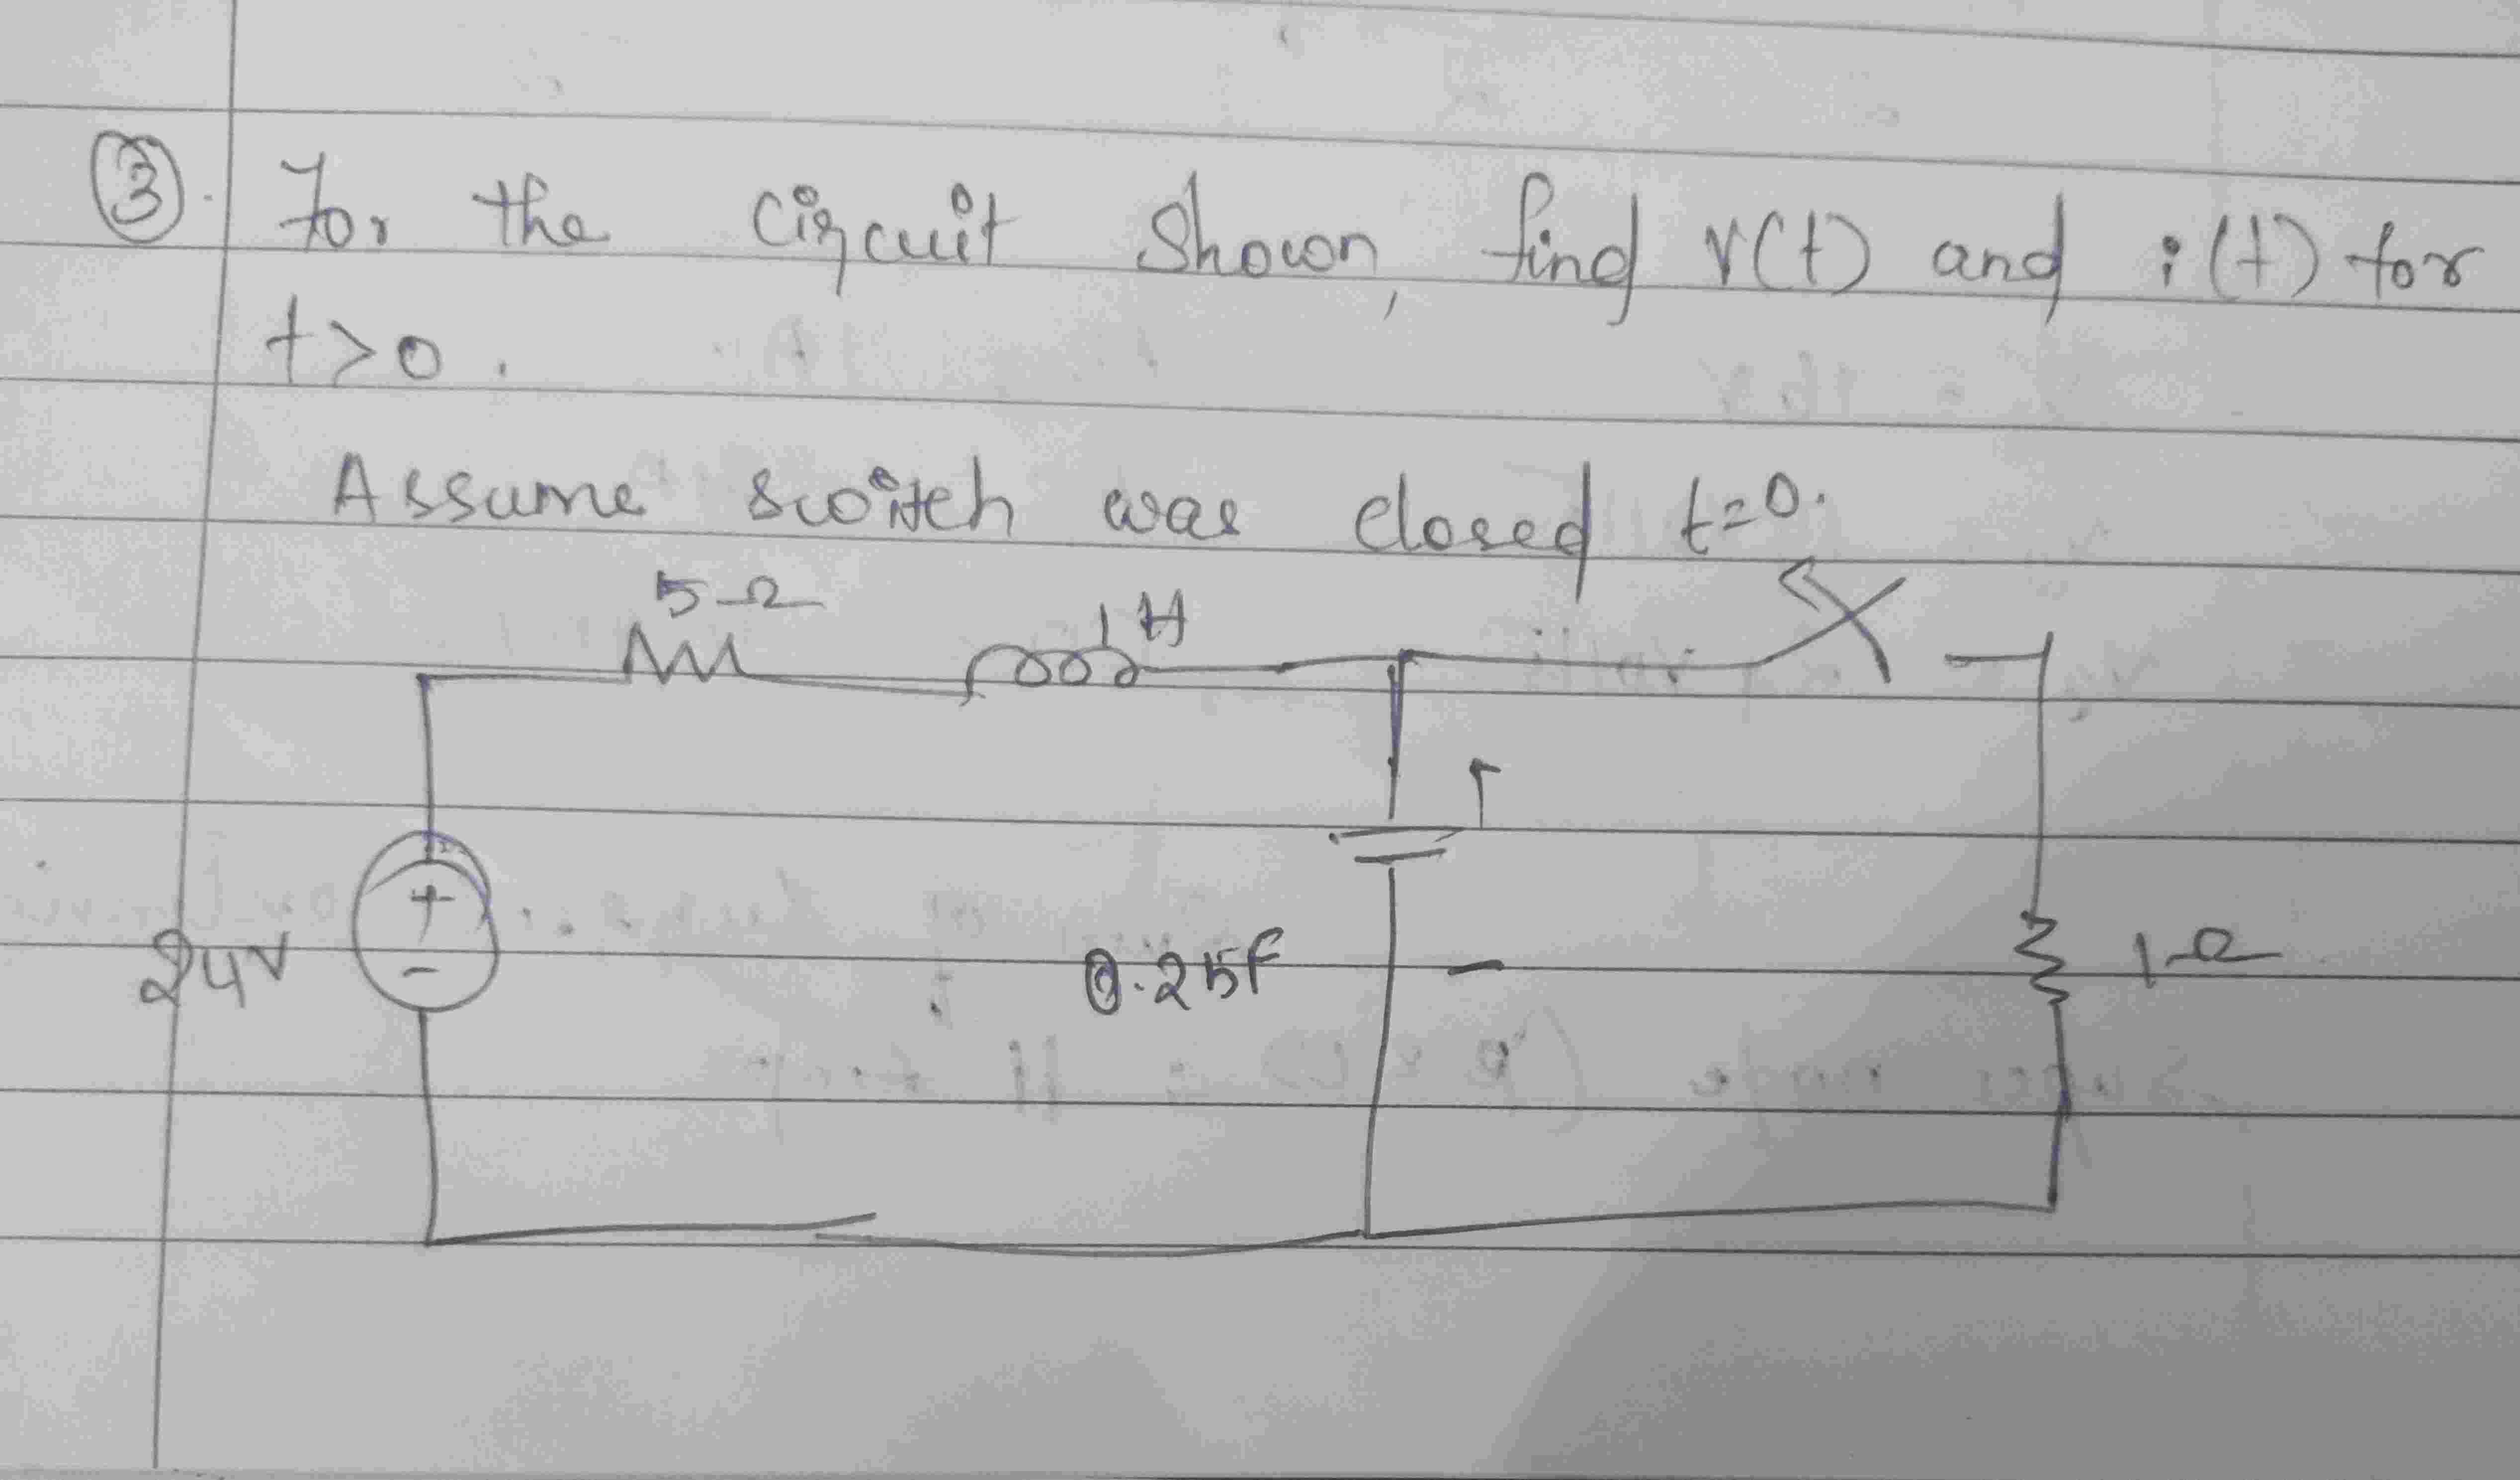 ③. For the circuit shown, find v(t) and i(t) for
t>0.
Assume switch was closed t=0.
5Ω
1H
+
-
24V
0.25f
-
1Ω